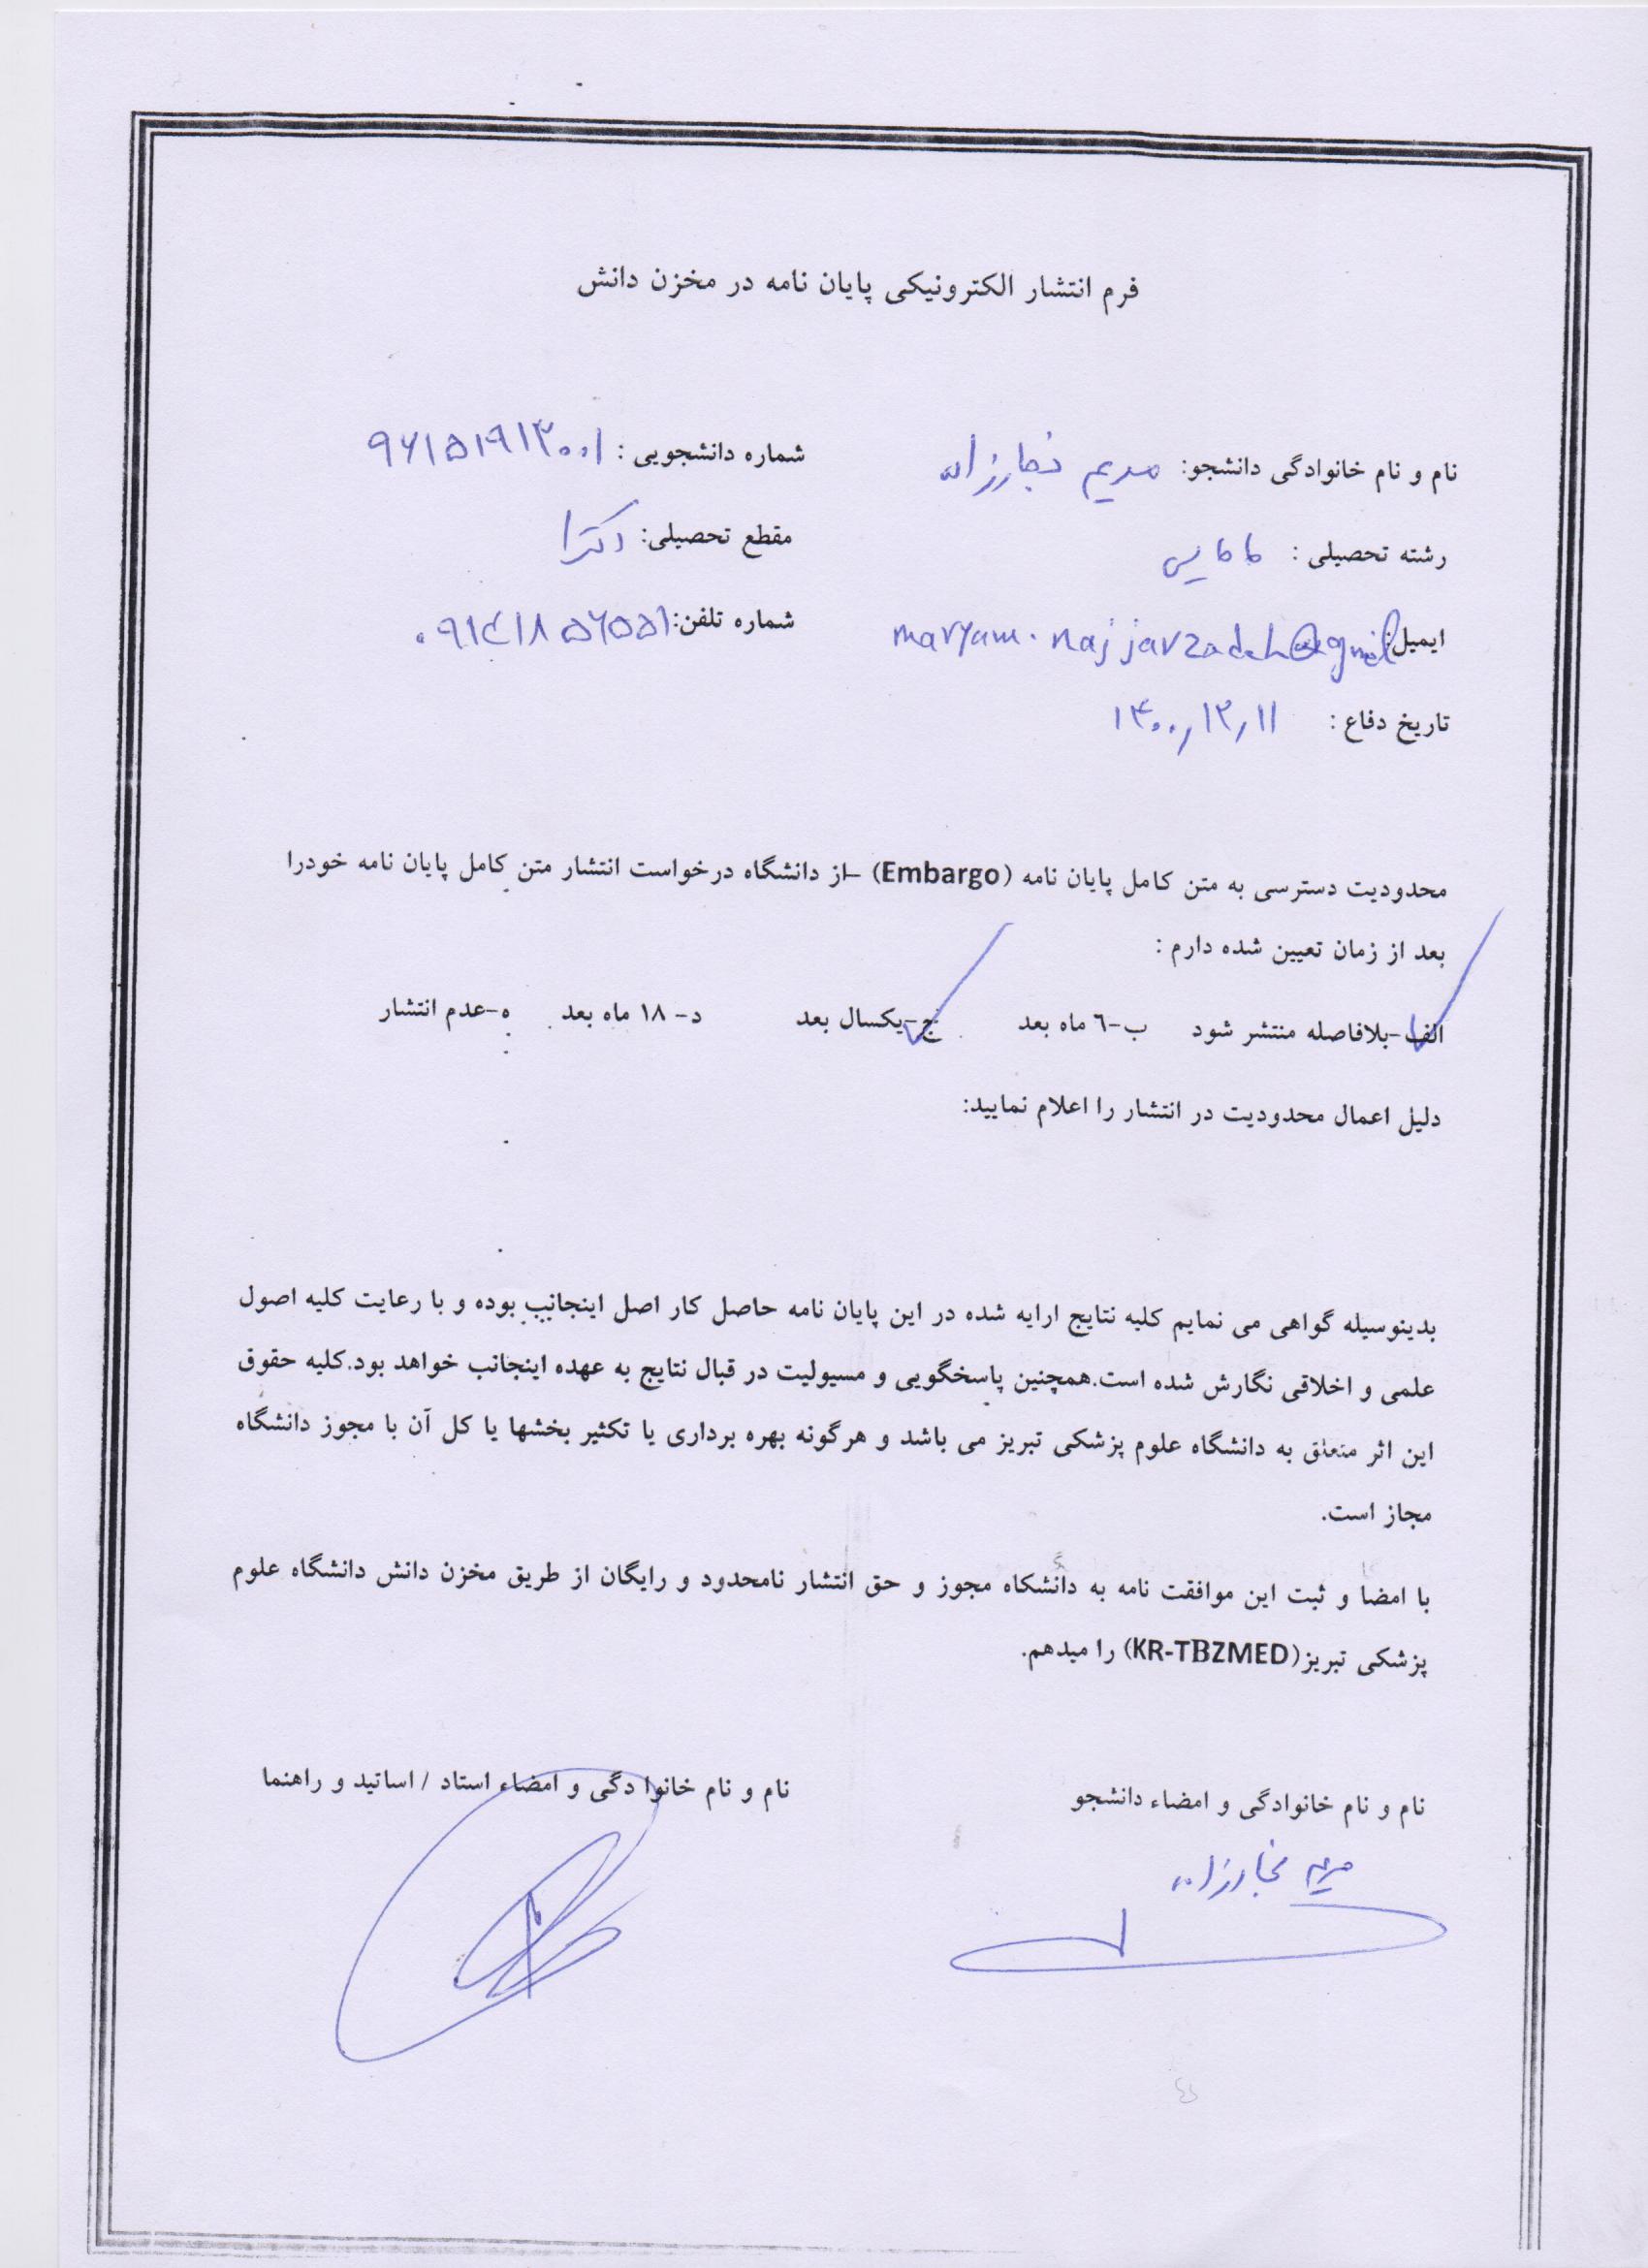 فرم انتشار الکترونیکی پایان نامه در مخزن دانش
نام و نام خانوادگی دانشجو: مریم نجارزاده شماره دانشجویی : ۹۶۱۵۱۹۱۳۰۰۱
رشته تحصیلی : مامایی مقطع تحصیلی: دکترا
ایمیل: maryam.najjarzadeh@gmail شماره تلفن: ۰۹۱۴۱۸۵۶۵۵۱
تاریخ دفاع : ۱۴۰۰,۱۲,۱۱
محدودیت دسترسی به متن کامل پایان نامه (Embargo) –از دانشگاه درخواست انتشار متن کامل پایان نامه خودرا
بعد از زمان تعیین شده دارم :
الف-بلافاصله منتشر شود ب-٦ ماه بعد ج-یکسال بعد د- ۱۸ ماه بعد ه-عدم انتشار
دلیل اعمال محدودیت در انتشار را اعلام نمایید:
بدینوسیله گواهی می نمایم کلیه نتایج ارایه شده در این پایان نامه حاصل کار اصل اینجانب بوده و با رعایت کلیه اصول
علمی و اخلاقی نگارش شده است.همچنین پاسخگویی و مسیولیت در قبال نتایج به عهده اینجانب خواهد بود.کلیه حقوق
این اثر متعلق به دانشگاه علوم پزشکی تبریز می باشد و هرگونه بهره برداری یا تکثیر بخشها یا کل آن با مجوز دانشگاه
مجاز است.
با امضا و ثبت این موافقت نامه به دانشکاه مجوز و حق انتشار نامحدود و رایگان از طریق مخزن دانش دانشگاه علوم
پزشکی تبریز(KR-TBZMED) را میدهم.
نام و نام خانوادگی و امضاء دانشجو نام و نام خانوا دگی و امضاء استاد / اساتید و راهنما
مریم نجارزاده